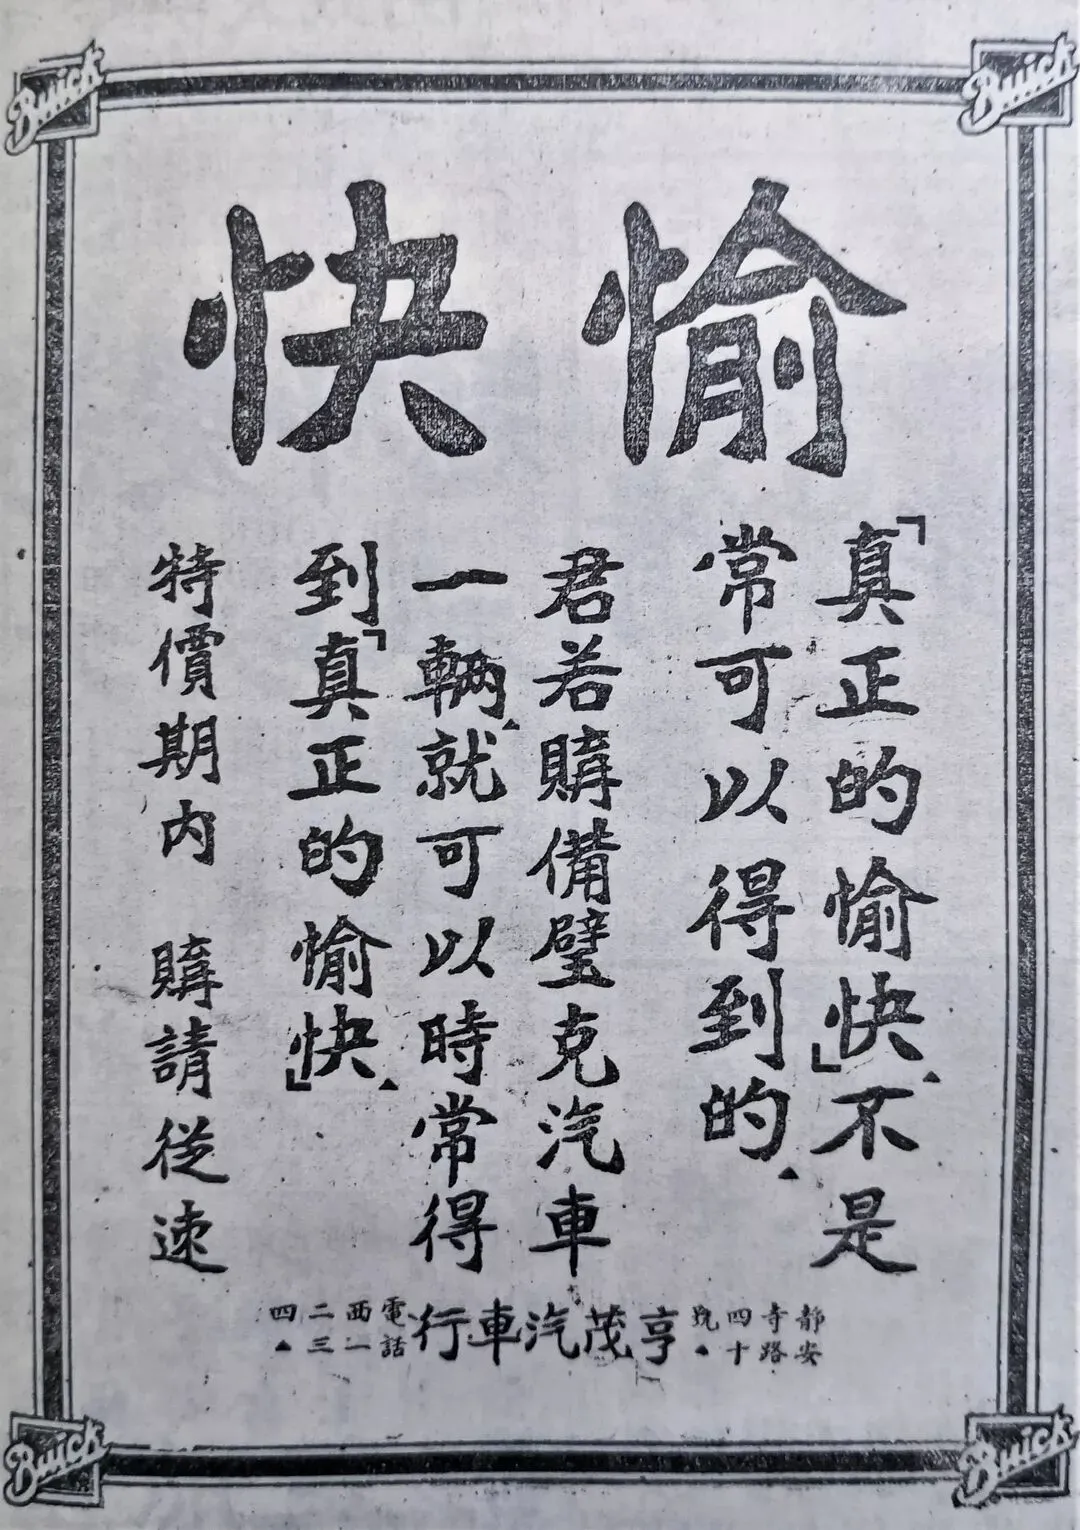 Buick
Buick
愉快
「真正的愉快」▲不是
常可以得到的▲
君若購備璧克汽車
一輛▲就可以時常得
到「真正的愉快」▲
特價期內 購請從速
静安寺路四十號▲
亨茂汽車行
電話西一二三四▲
Buick
Buick